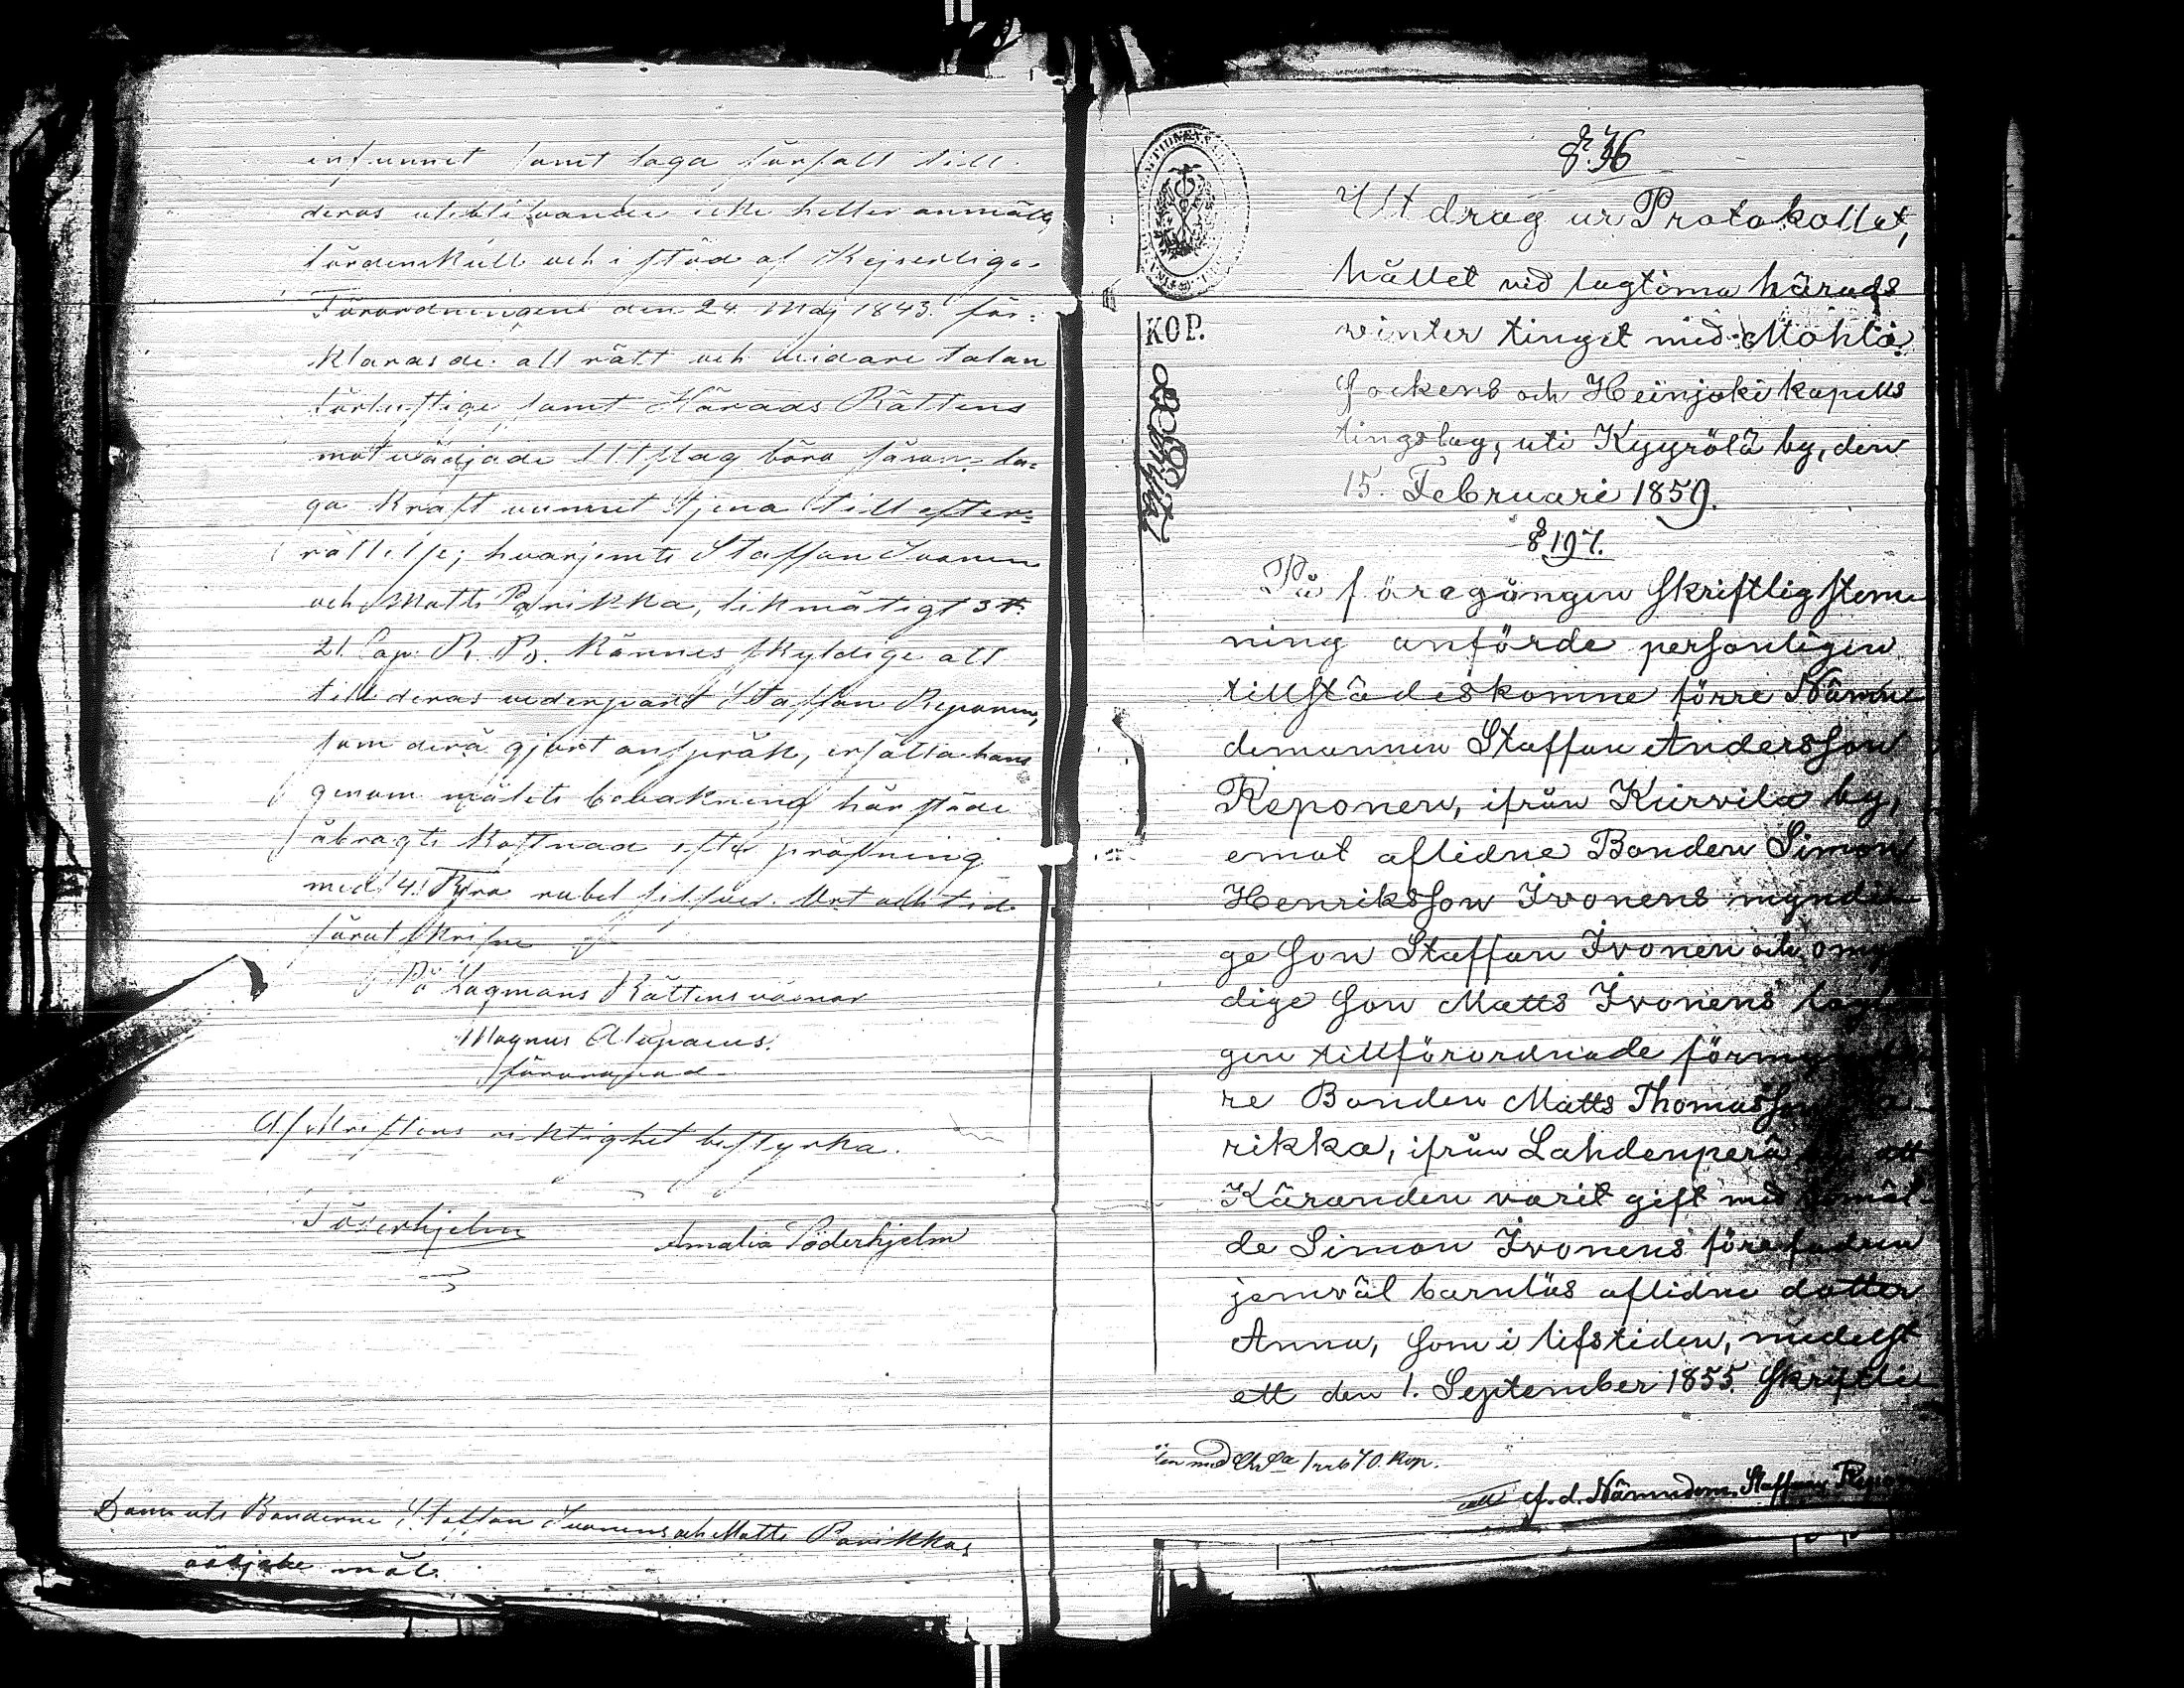 infunnit samt laga förfall till
deras uteblifvande icke heller anmält,
fördenskull och i stöd af Kejserliga
Förordningen den 24 Maj 1843. för=
klaras de all rätt och vidare talan
förlustige samt Härads Rättens
motvädjade Utslag böra såsom la=
ga kraft vunnit tjena till efter=
rättelse; hvarjemte Staffan Ivonen
och Matts Parikka, likmätigt 3 §.
21 Cap. R. B. kännes skyldige att
till deras vederpart Staffan Reponen,
som derå gjort anspråk, ersätta hans
genom målets bevakning härstäde
åbragte kostnad efter pröfning
med 4. Fyra rubel silfver. Ort och tid
förutskrifne
På Lagmans Rättens vägnar
Magnus Alopaeus.
Afskriftens riktighet bestyrka.
Söderhjelm
Amalia Söderhjelm
Bönderne Staffan Ivonens och Matts Parikkas
vädjade mål.
KOP.
§. 36
Utdrag ur Protokollet,
hållet vid lagtima härads
winter tinget med Mohla
Sockens och Heinjoki kapells
tingslag, uti Kyyrölä by, den
15. Februari 1859.
§ 197.
På föregången skriftlig stem
ning anförde personligen
tillstädeskomne förre Nämn
demannen Staffan Andersson
Reponen, ifrån Kurvila by,
emot aflidne Bonden Simon
Henriksson Ivonens myndi
ge son Staffan Ivonen och omyn
dige son Matts Ivonens lagli
gen tillförordnade förmynda
re Bonden Matts Thomasson Pa
rikka, ifrån Lahdenperä by, att
Käranden varit gift med bemäl
de Simon Ivonens före fadren
jemväl barnlös aflidne dotter
Anna, som i lifstiden, medelst
ett den 1. September 1855. skriftli
ten med Ch. Sa 1 rub 70. kop.
f. d. Nämndem. Staffan Reponen